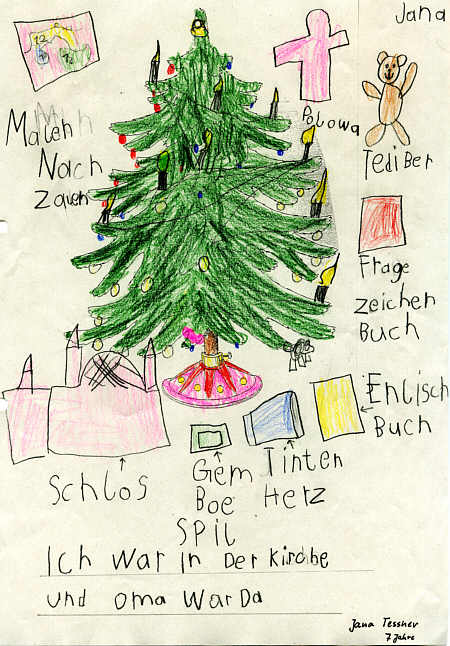 Jana
Malenn
Nach
Zalen
Polowa
TediBer
Frage
zeichen
Buch
Enlisch
Buch
Schlos
Gem
Boe
SPil
Tinten
Herz
Ich war in Der Kirche
und oma war Da
Jana Tessner
7 Jahre